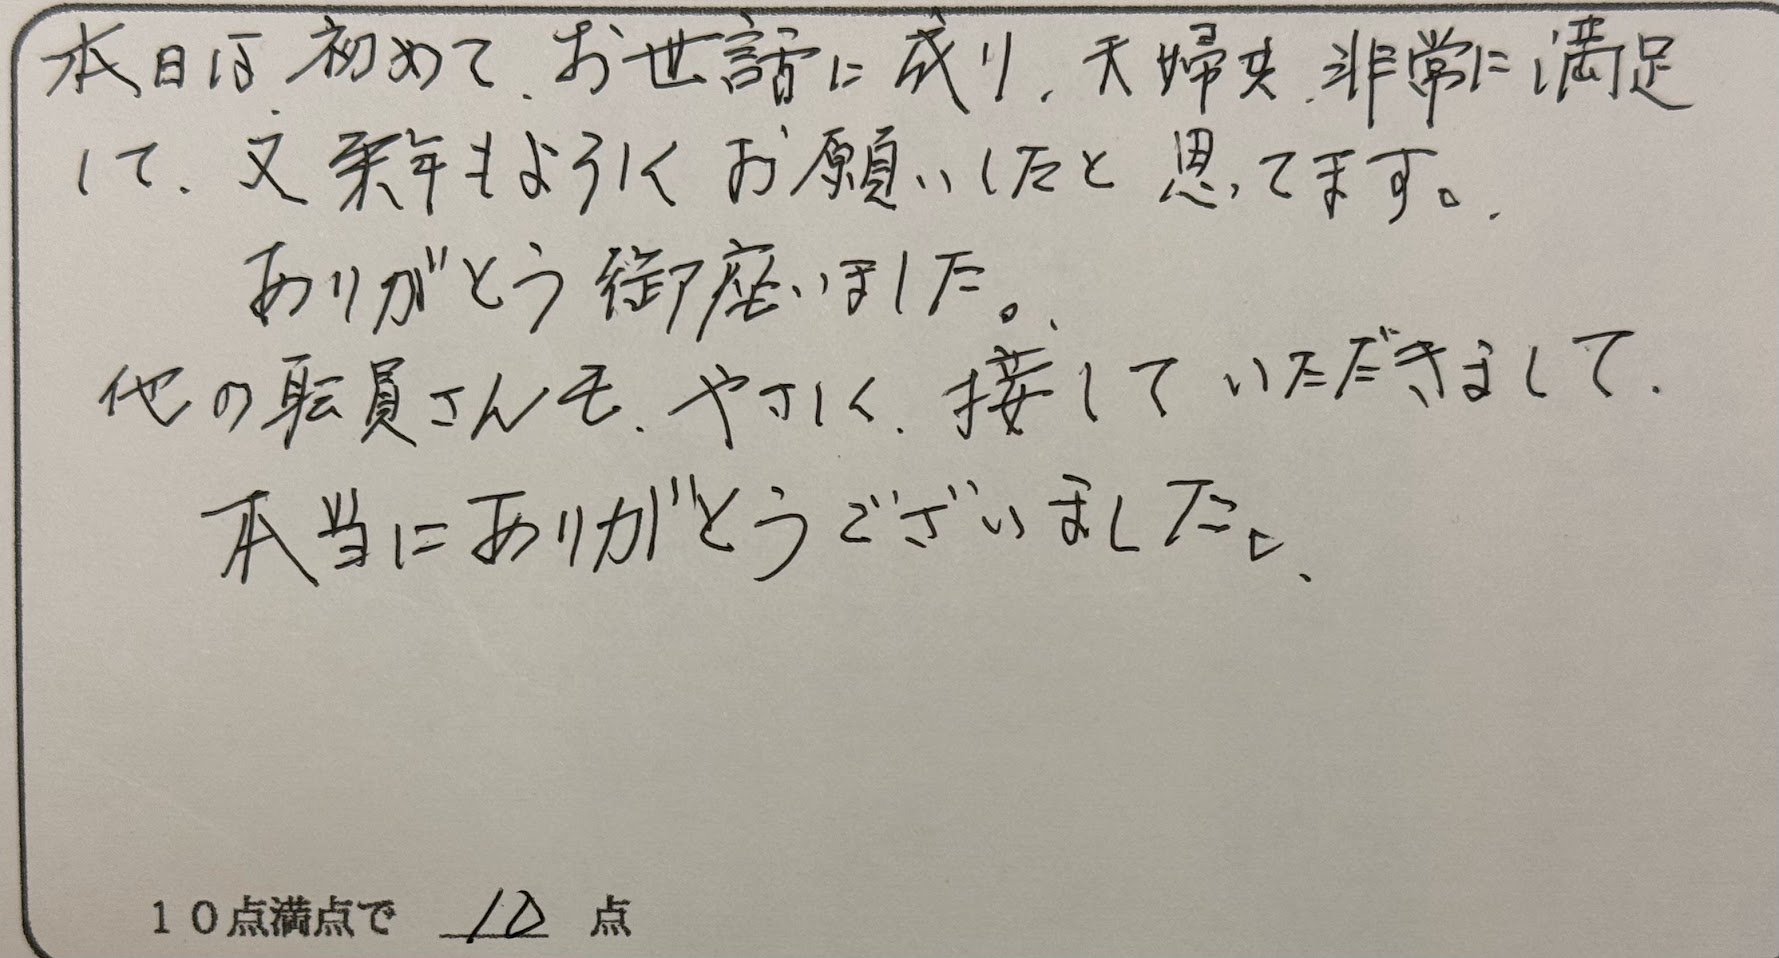 本日は、初めて、お世話に成り、夫婦共、非常に満足
して、又来年もよろしくお願いしたと思ってます。
ありがとう御座いました。
他の職員さんも、やさしく、接していただきまして、
本当にありがとうございました。
10点満点で 10 点